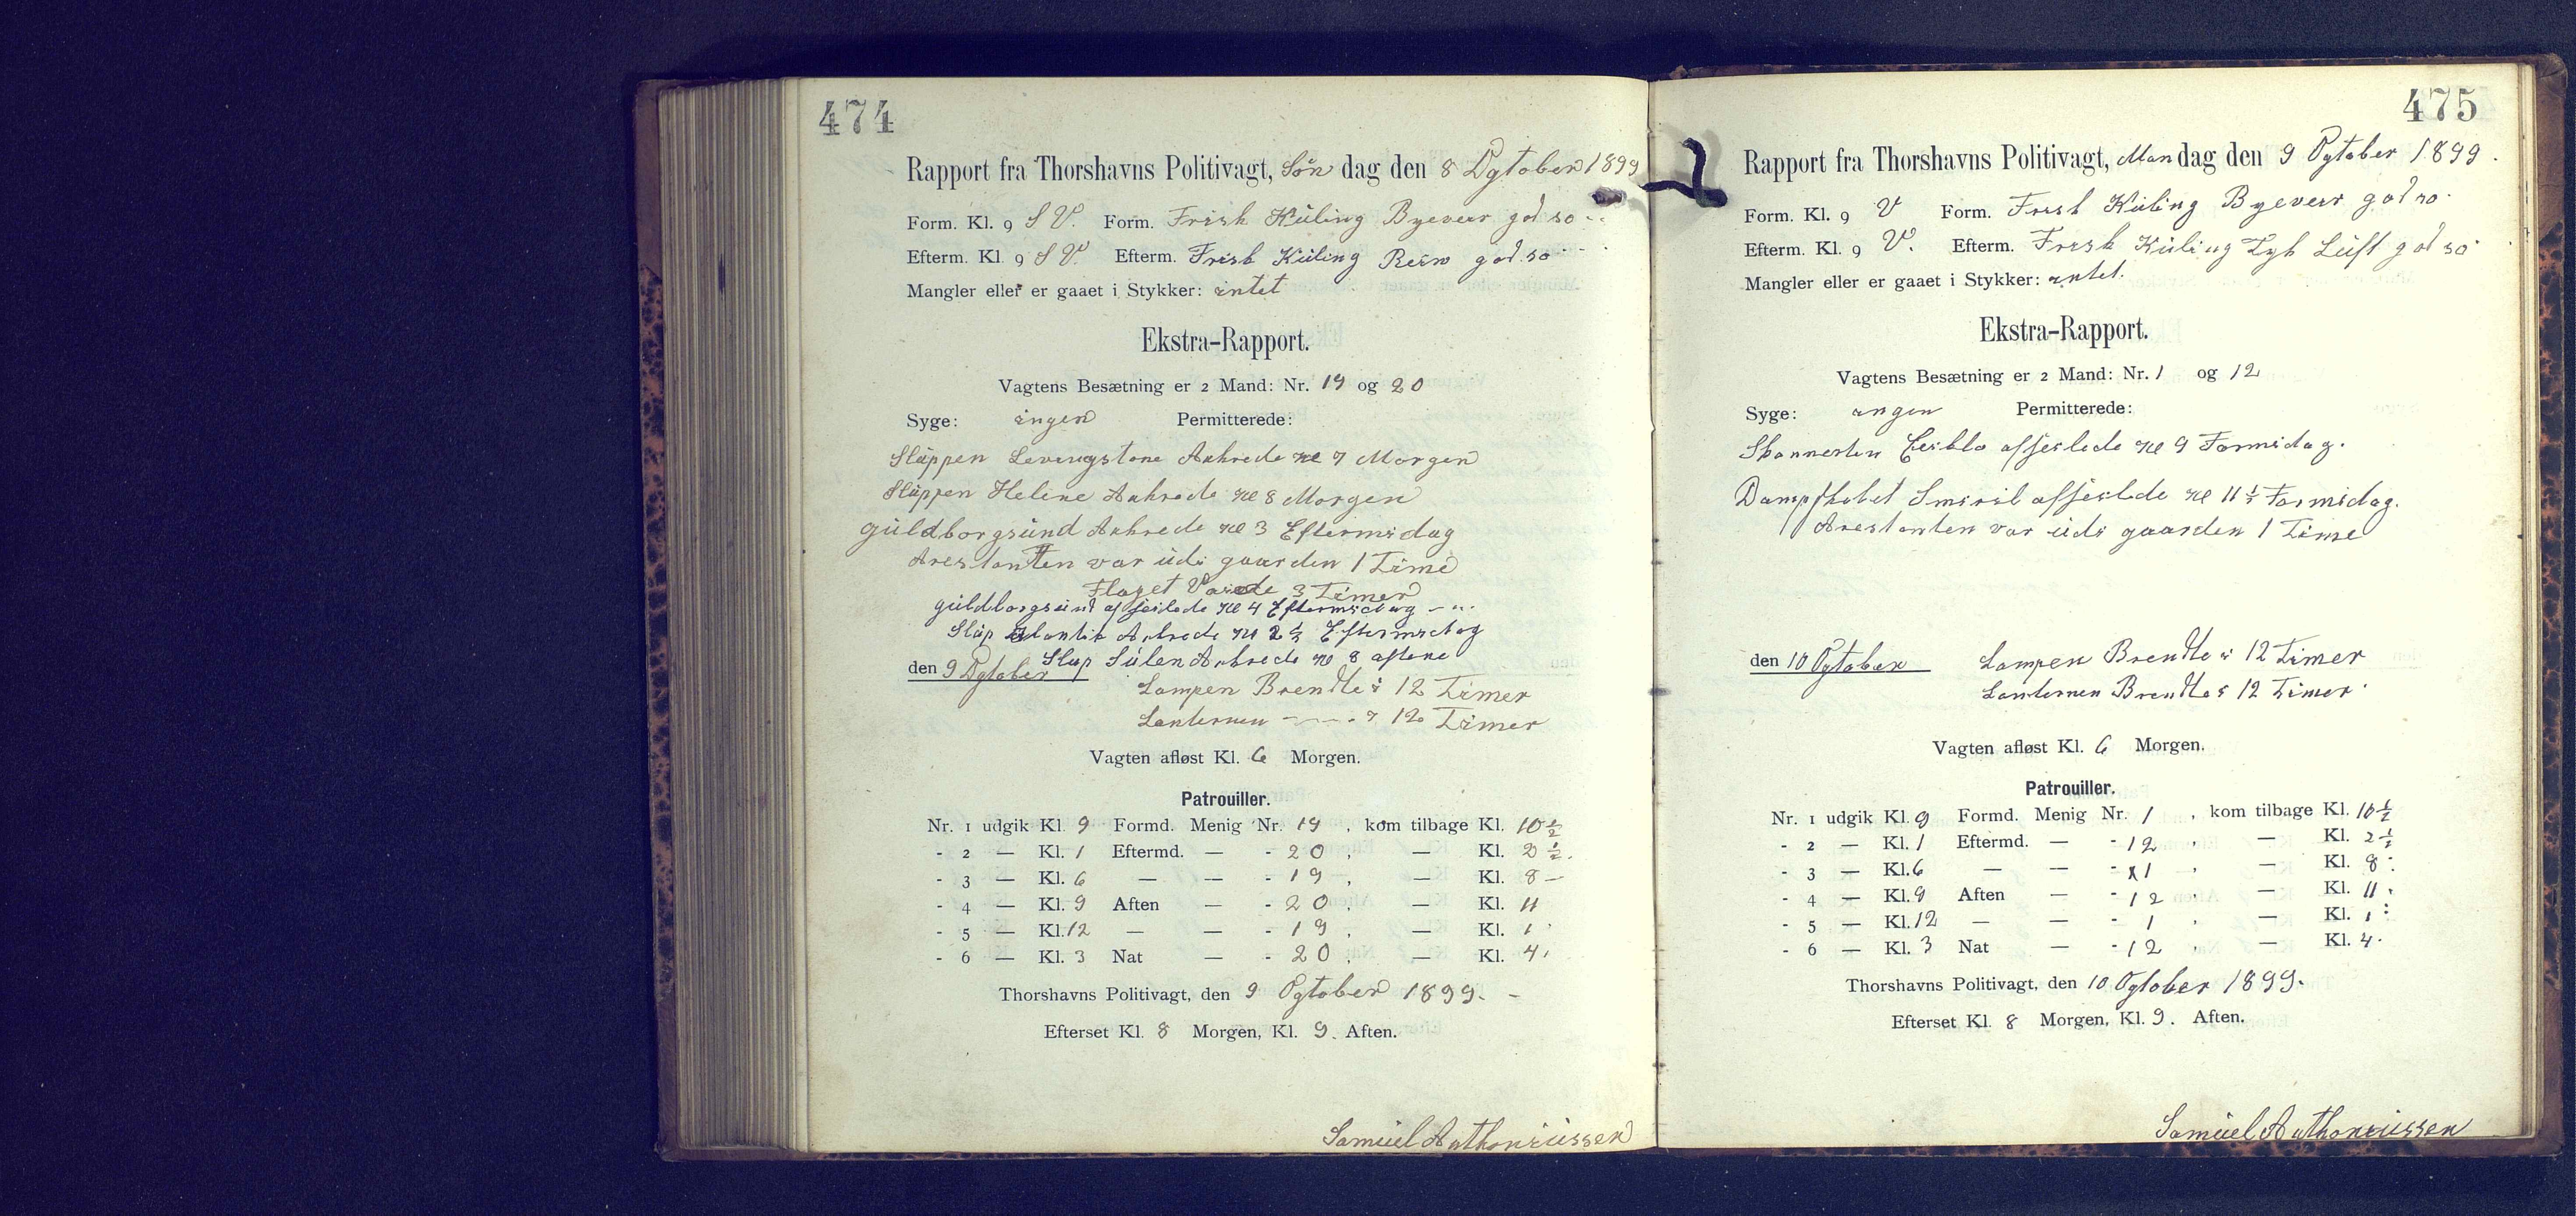 474
Rapport fra Thorshavns Politivagt, Søn dag den 8 Ogtober 1899
Form. Kl. 9 S V. Form. Frisk Kuling Byeveir god ro
Efterm. Kl. 9 S V. Efterm. Frisk Kuling Rein god ro
Mangler eller er gaaet i Stykker: intet
Ekstra-Rapport.
Vagtens Besætning er 2 Mand: Nr. 19 og 20
Syge: ingen Permitterede:
Sluppen Levingstone Ankrede Kl 7 Morgen
Sluppen Heline Ankrede Kl 8 Morgen
Guldborgsund Ankrede Kl 3 Eftermidag
Arestanten var udi gaarden 1 Time
Flaget Vaiede 3 Timer
Guldborgsund afseilede Kl 4 Eftermidag
Slup Atlantik Ankrede Kl 2 1/2 Eftermidag
Slup Sulen Ankrede Kl 8 aftene
den 9 Ogtober
Lampen Brendte i 12 Timer
Lanternen — " — i 12 Timer
Vagten afløst Kl. 6 Morgen.
Patrouiller.
Nr. 1 udgik Kl. 9 Formd. Menig Nr. 19, kom tilbage Kl. 10 1/2
- 2 — Kl. 1 Eftermd. — - 20, — Kl. 2 1/2.
- 3 — Kl. 6 — — - 19, — Kl. 8 —
- 4 — Kl. 9 Aften — - 20, — Kl. 11
- 5 — Kl. 12 — — - 19, — Kl. 1
- 6 — Kl. 3 Nat — - 20, — Kl. 4
Thorshavns Politivagt, den 9 Ogtober 1899. -
Efterset Kl. 8 Morgen, Kl. 9. Aften.
Samuel Anthoniussen
475
Rapport fra Thorshavns Politivagt, Man dag den 9 Ogtober 1899.
Form. Kl. 9 V Form. Frisk Kuling Byeveir god ro.
Efterm. Kl. 9 V. Efterm. Frisk Kuling Tyk Luft god ro
Mangler eller er gaaet i Stykker: intet.
Ekstra-Rapport.
Vagtens Besætning er 2 Mand: Nr. 1 og 12
Syge: ingen Permitterede:
Skonnerten afseilede Kl 9 Formidag.
Dampskibet Smiril afseilede Kl 11 1/2 Formidag.
Arestanten var udi gaarden 1 Time
den 10 Ogtober Lampen Brendte i 12 Timer
Lanternen Brendte i 12 Timer
Vagten afløst Kl. 6 Morgen.
Patrouiller.
Nr. 1 udgik Kl. 9 Formd. Menig Nr. 1, kom tilbage Kl. 10 1/2
- 2 — Kl. 1 Eftermd. — - 12, — Kl. 2 1/2
- 3 — Kl. 6 — — - 1, — Kl. 8
- 4 — Kl. 9 Aften — - 12, — Kl. 11
- 5 — Kl. 12 — — - 1, — Kl. 1
- 6 — Kl. 3 Nat — - 12, — Kl. 4.
Thorshavns Politivagt, den 10 Ogtober 1899.
Efterset Kl. 8 Morgen, Kl. 9. Aften.
Samuel Anthoniussen